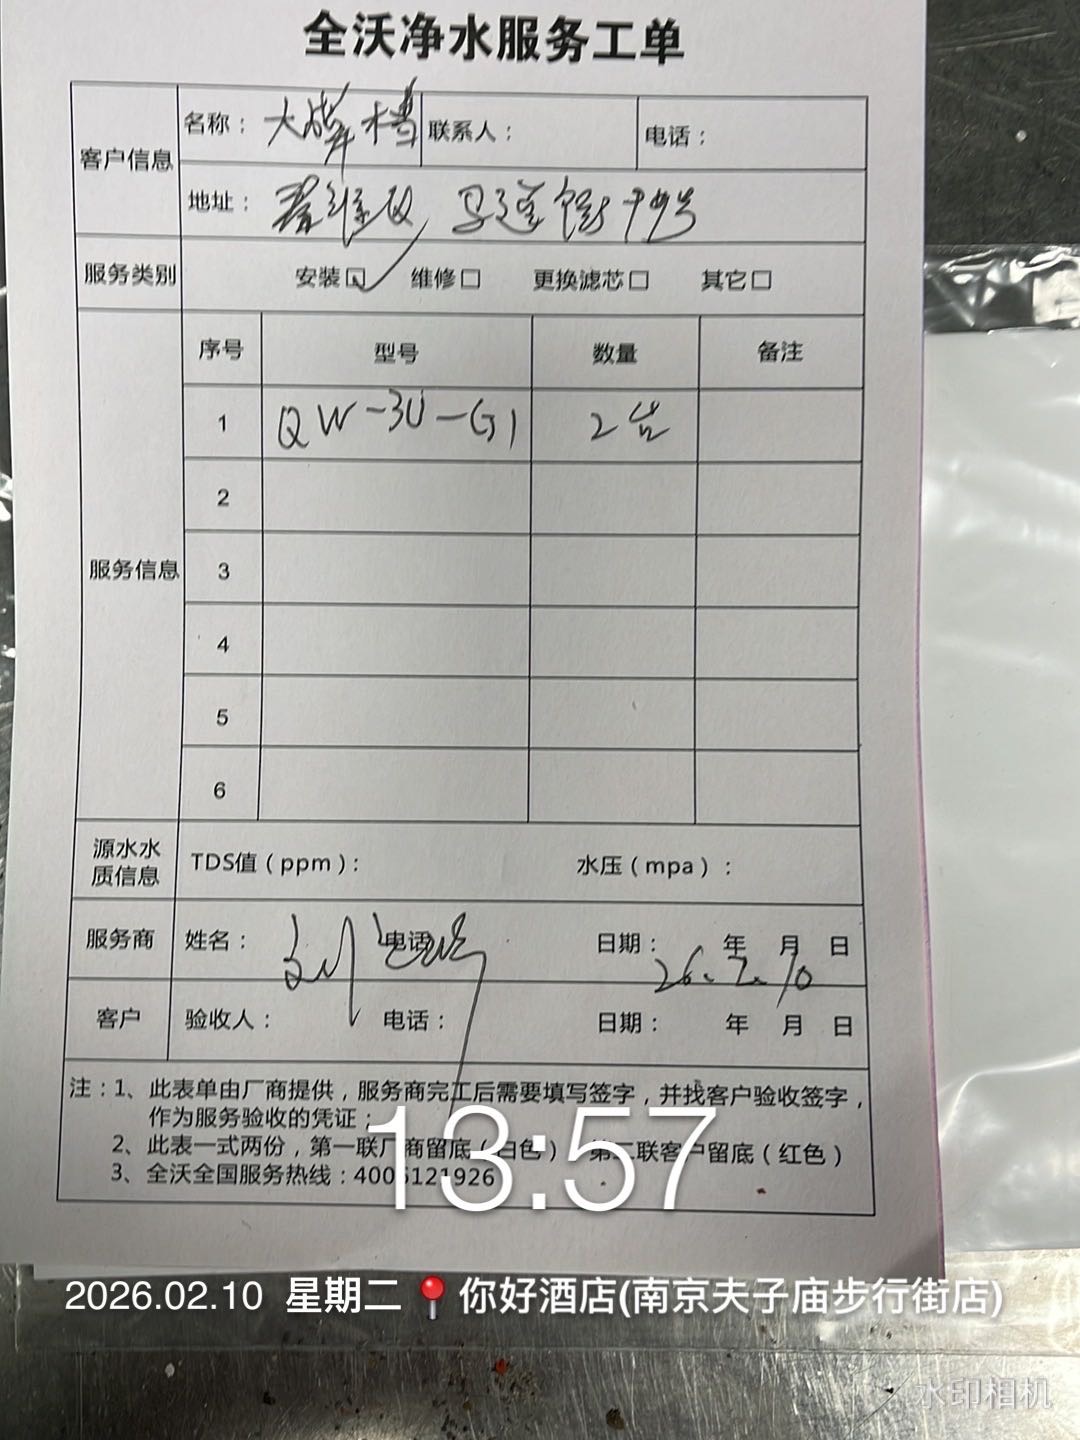 全沃净水服务工单
客户信息 名称： 大牌档 联系人： 电话：
地址： 秦淮区 马道街 号
服务类别 安装☑ 维修□ 更换滤芯□ 其它□
服务信息 序号 型号 数量 备注
1 QW-3U-G1 2台
2
3
4
5
6
源水水质信息 TDS值（ppm）： 水压（mpa）：
服务商 姓名： 刘 电话 日期： 年 月 日 26.2.10
客户 验收人： 电话： 日期： 年 月 日
注：1、此表单由厂商提供，服务商完工后需要填写签字，并找客户验收签字，
作为服务验收的凭证；
2、此表一式两份，第一联厂商留底（白色） 第二联客户留底（红色）
3、全沃全国服务热线：4006121926
13:57
2026.02.10 星期二 你好酒店(南京夫子庙步行街店)
水印相机